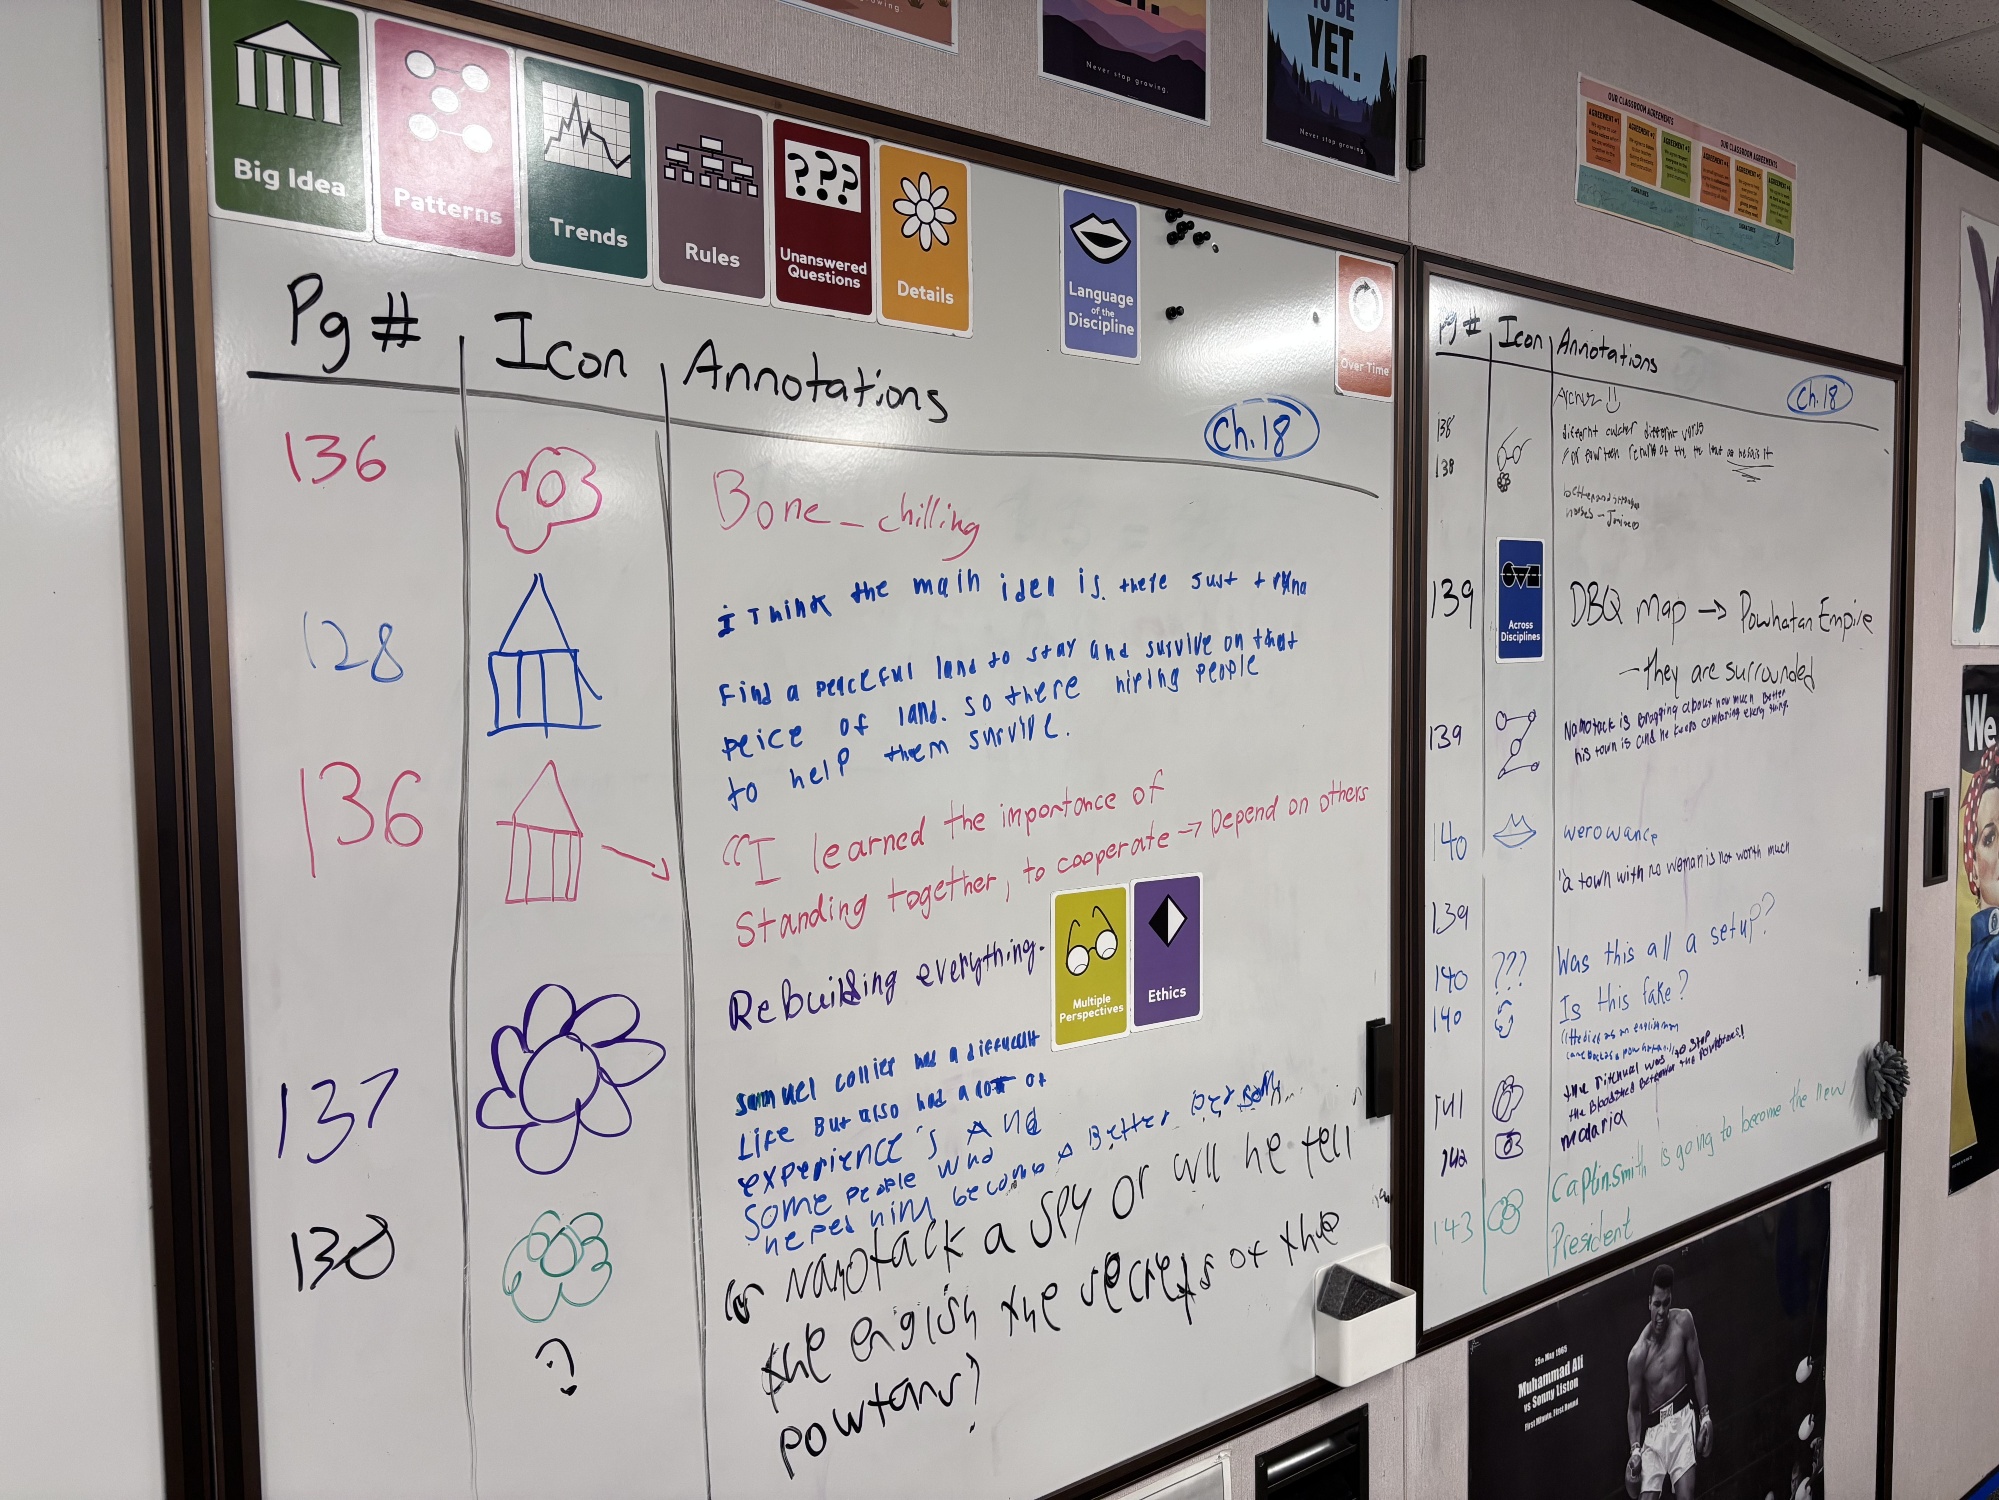 Big Idea
Patterns
Trends
Rules
???
Unanswered
Questions
Details
Language
of the
Discipline
Over Time
growing.
Never stop growing.
TO BE
YET.
Never stop growing.
OUR CLASSROOM AGREEMENTS
OUR CLASSROOM AGREEMENTS
AGREEMENT #1
SIGNATURES
SIGNATURES
Pg # Icon Annotations
Ch. 18
136 Bone-chilling
128 i Think the main idea is. there Just tryna
Find a peiceful land to stay and survive on that
peice of land. so there hiring people
to help them survive.
136 "I learned the importance of
Standing together, to cooperate → Depend on others
Rebuilding everything.
Multiple
Perspectives
Ethics
137 Samuel collier had a difficult
Life But also had a lot of
experience's And
some people who
heped him become A Better person
138 is Namotack a spy or will he tell
? the english the secrets of the
powtans?
Pg # Icon Annotations
Ch. 18
Archer
138 differnt different
138
139 Across
Disciplines
DBQ map → Powhatan Empire
- they are surrounded
139 Namotack is Bragging about how much Better
his town is and he keeps comparing every thing.
140 werowance
139 "a town with no woman is not worth much
140 ??? Was this all a setup??
140 Is this fake?
141 the Ritchual was to stop
the Bloodshed Between the
142 malaria
143 Captin.smith is going to become the new
President
We
25th May 1965
Muhammad Ali
vs Sonny Liston
First Minute, First Round